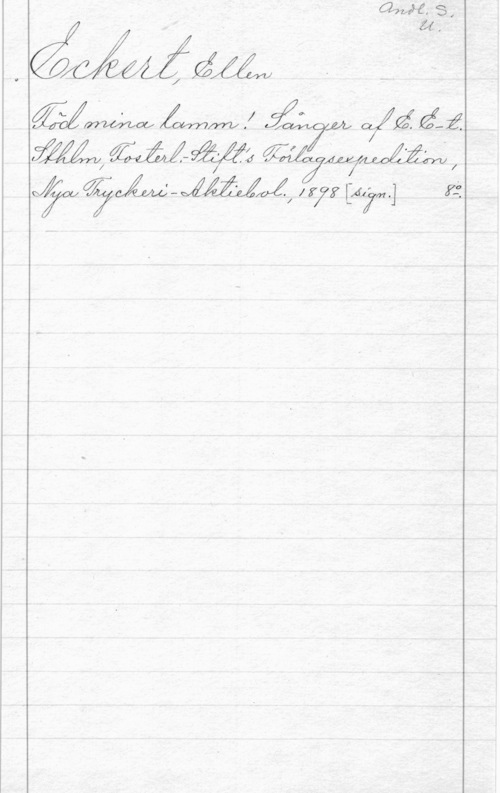 Andl. S.
U.
Eckert, Ellen
Föd mina lamm! Sånger af E. E-t.
Sthlm, Fosterl.-Stift:s Förlagsexpedition,
Nya Tryckeri-Aktiebol., 1898 [sign.] 8:o